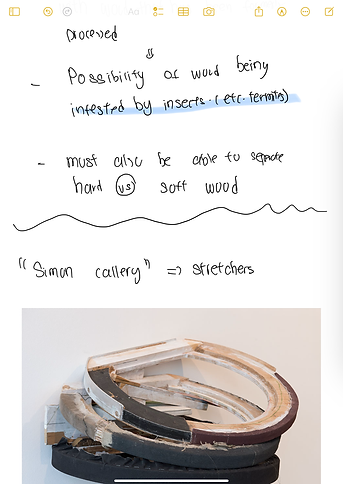 proceved
⇓
- Possibility of wood being
infested by insects. (etc. termites)
- must also be able to seperate
hard (vs) soft wood
"Simon callery" => stretchers